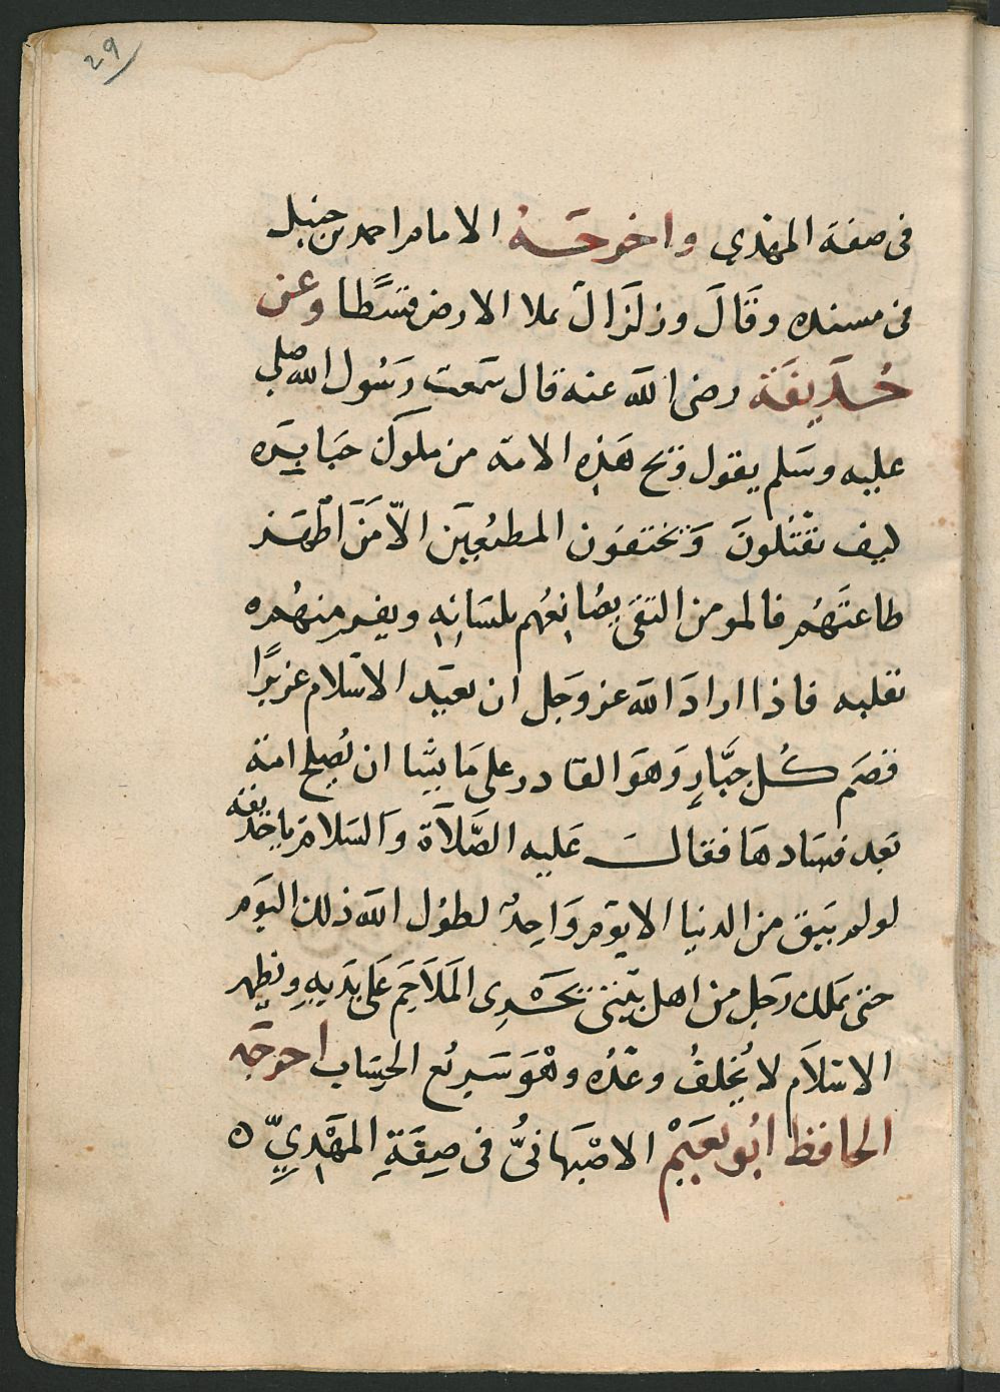 29
فى صفة المهدي واخرجه الامام احمد بن حنبل
فى مسنده وقَالَ وزلزَال يملا الارض قسطًا وعن
حُذَيفَة رضى الله عنه قال سَمعت رَسُول الله صلى
عليه وسَلم يقول ويح هَذِه الامة من ملوك جَبَابِرَه
كيف يقتُلونَ وَيخيفون المطيعِين الّا مَنَ اظهَر
طاعتَهُم فالمومن التقى يصَانِعُهم بلسَانِهِ ويفر منهُم
بقلبه فاذا ارادَ الله عز وَجل ان يعيد الاسلام عزيزًا
قصَم كُل جَبَّارٍ وَهوَ القادر على مَا يشَا ان يُصلح امة
بَعد فسَادهَا فقالَ عَليه الصَّلاَة وَالسَلام يا حذيفة
لولم يَبق من الدنيا الا يوم وَاحِدٌ لطول الله ذلك اليَوم
حتى يملك رَجل من اهل بيتى تجرى المَلاَحِم عَلى يدَيهِ ويظهر
الاسلاَم لا يُخلفُ وعدُه وهْوَ سَريع الحِسَاب اخرجَه
الحافظ ابُو نعَيْم الاصْبهَانىُّ فى صِفَةِ المَهْدِيِّ ه